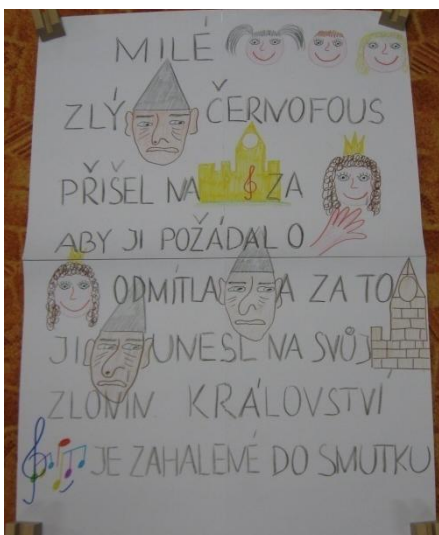 MILÉ
ZLÝ ČERNOFOUS
PŘIŠEL NA ZA
ABY JI POŽÁDAL O
ODMÍTLA A ZA TO
JI UNESL NA SVŮJ
ZLOMIN KRÁLOVSTVÍ
JE ZAHALENÉ DO SMUTKU